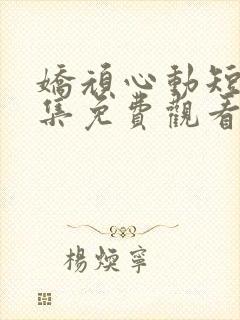 嬌頑心動短
集免費觀看
楊煐寧